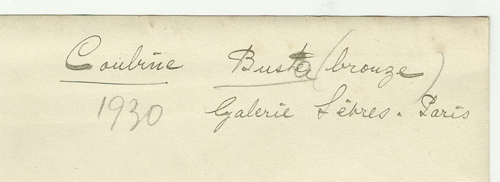 Coubine Buste (bronze)
1930 Galerie Sèvres. Paris